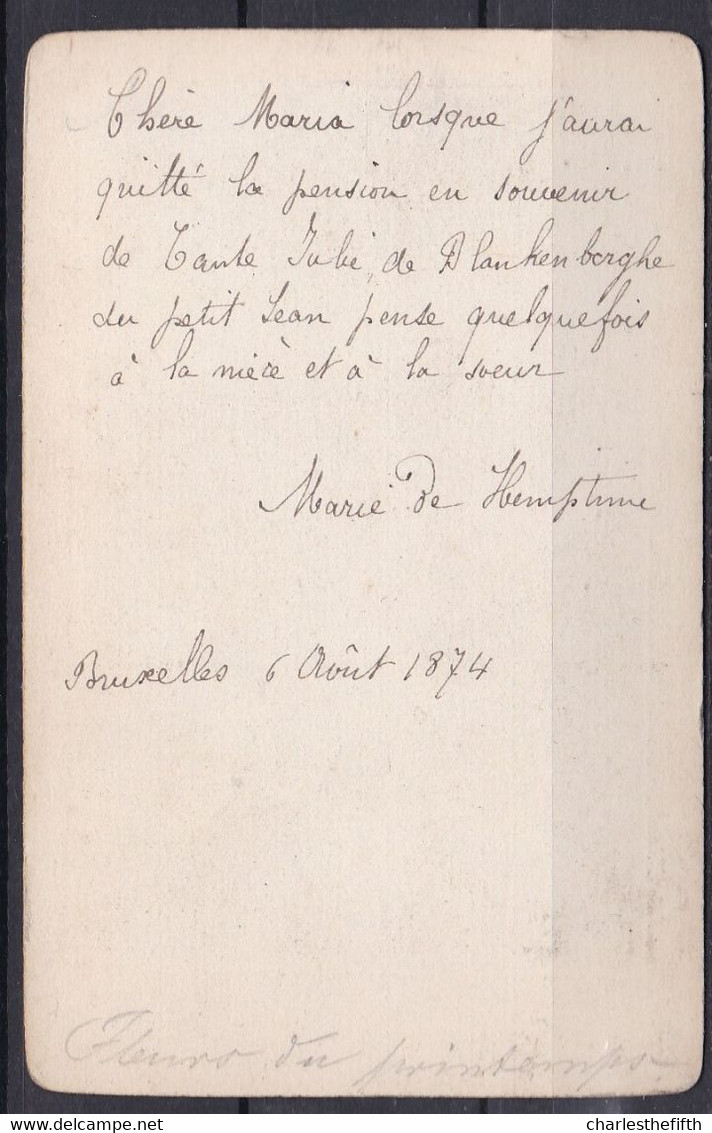 Chère Maria lorsque j'aurai
quitté la pension en souvenir
de Tante Julie, de Blankenberghe
du petit Jean pense quelquefois
à la mère et à la soeur
Marie de Hemptinne
Bruxelles 6 Août 1874
Fleurs du printemps
charlesthefifth